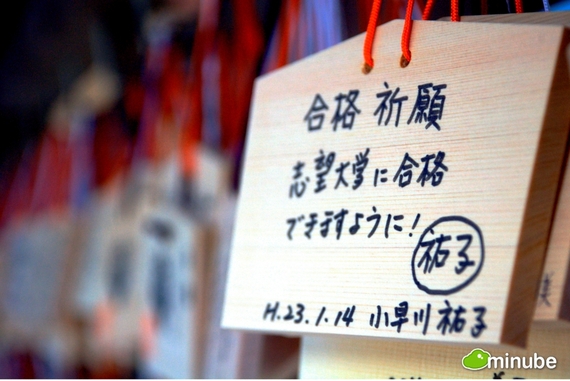 合格祈願
志望大学に合格
できますように!
祐子
H.23.1.14 小早川祐子
minube